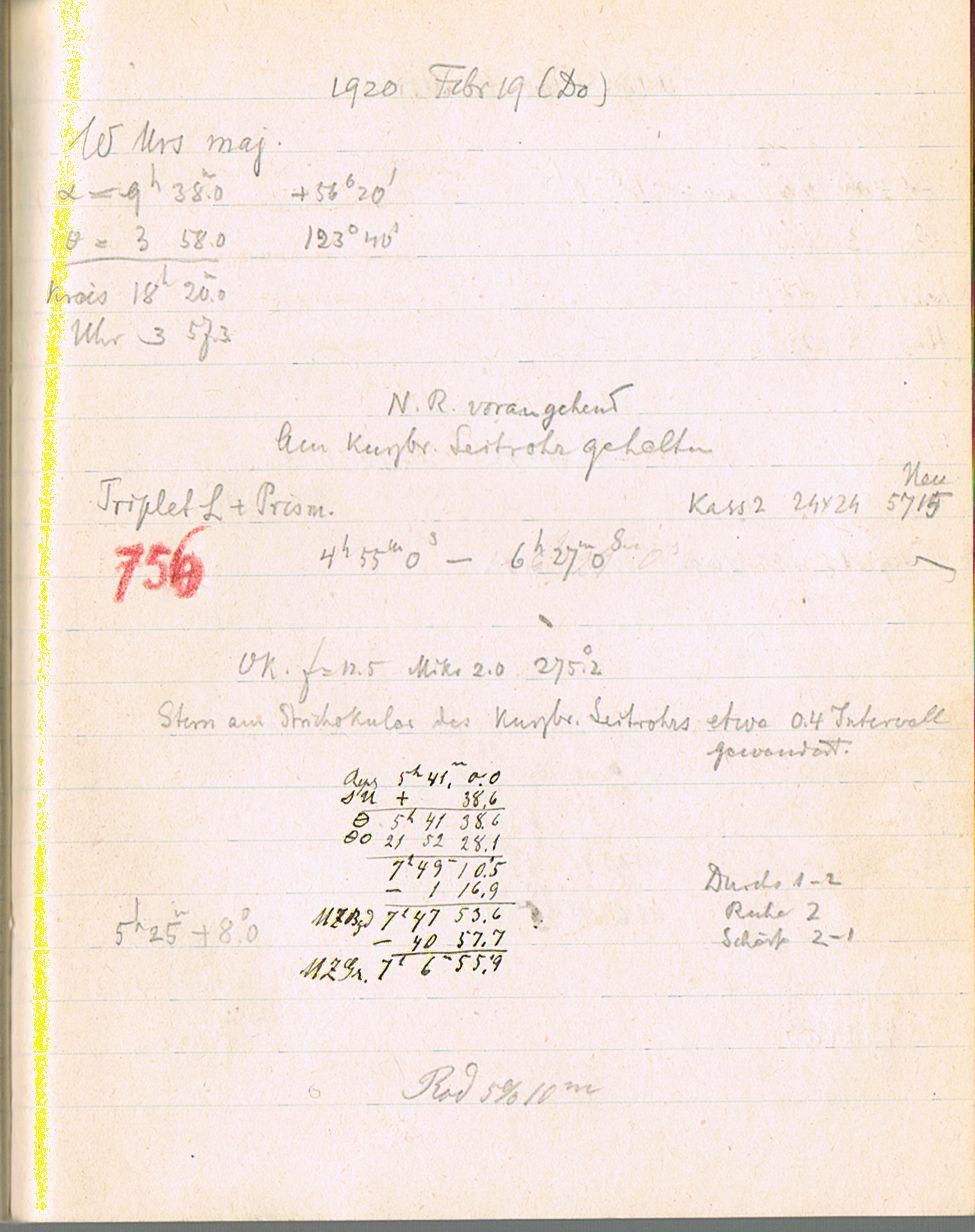 1920 Febr 19 (Do)
W Urs maj.
α = 9ʰ 38ᵐ.0 +56°20'
θ = 3 58.0 123°40'
Kreis 18ʰ 20ᵐ.0
Uhr 3 57.3
N. R. vorangehend
Am Kurzbr. Leitrohr gehalten
Neu
Triplet L + Prism. Kass 2 24x24 5715
756 4ʰ 55ᵐ 0ˢ — 6ʰ 27ᵐ 0ˢ
OK. f=12.5 Mikr 2.0 275°.2
Stern am Strichokular des Kurzbr. Leitrohrs etwa 0.4 Intervall
gewandert.
5ʰ 41ᵐ. 0.0
ΔU + 38.6
θ 5ʰ 41 38.6
θ0 21 52 28.1
7ʰ 49ᵐ 10.5
— 1 16.9
Durchs 1-2
MZBgd 7ʰ 47 53.6
Ruhe 2
5ʰ 25ᵐ + 8°.0
— 40 57.7
Schärfe 2-1
MZGr. 7ʰ 6ᵐ 55.9
Rod 5% 10ᵐ